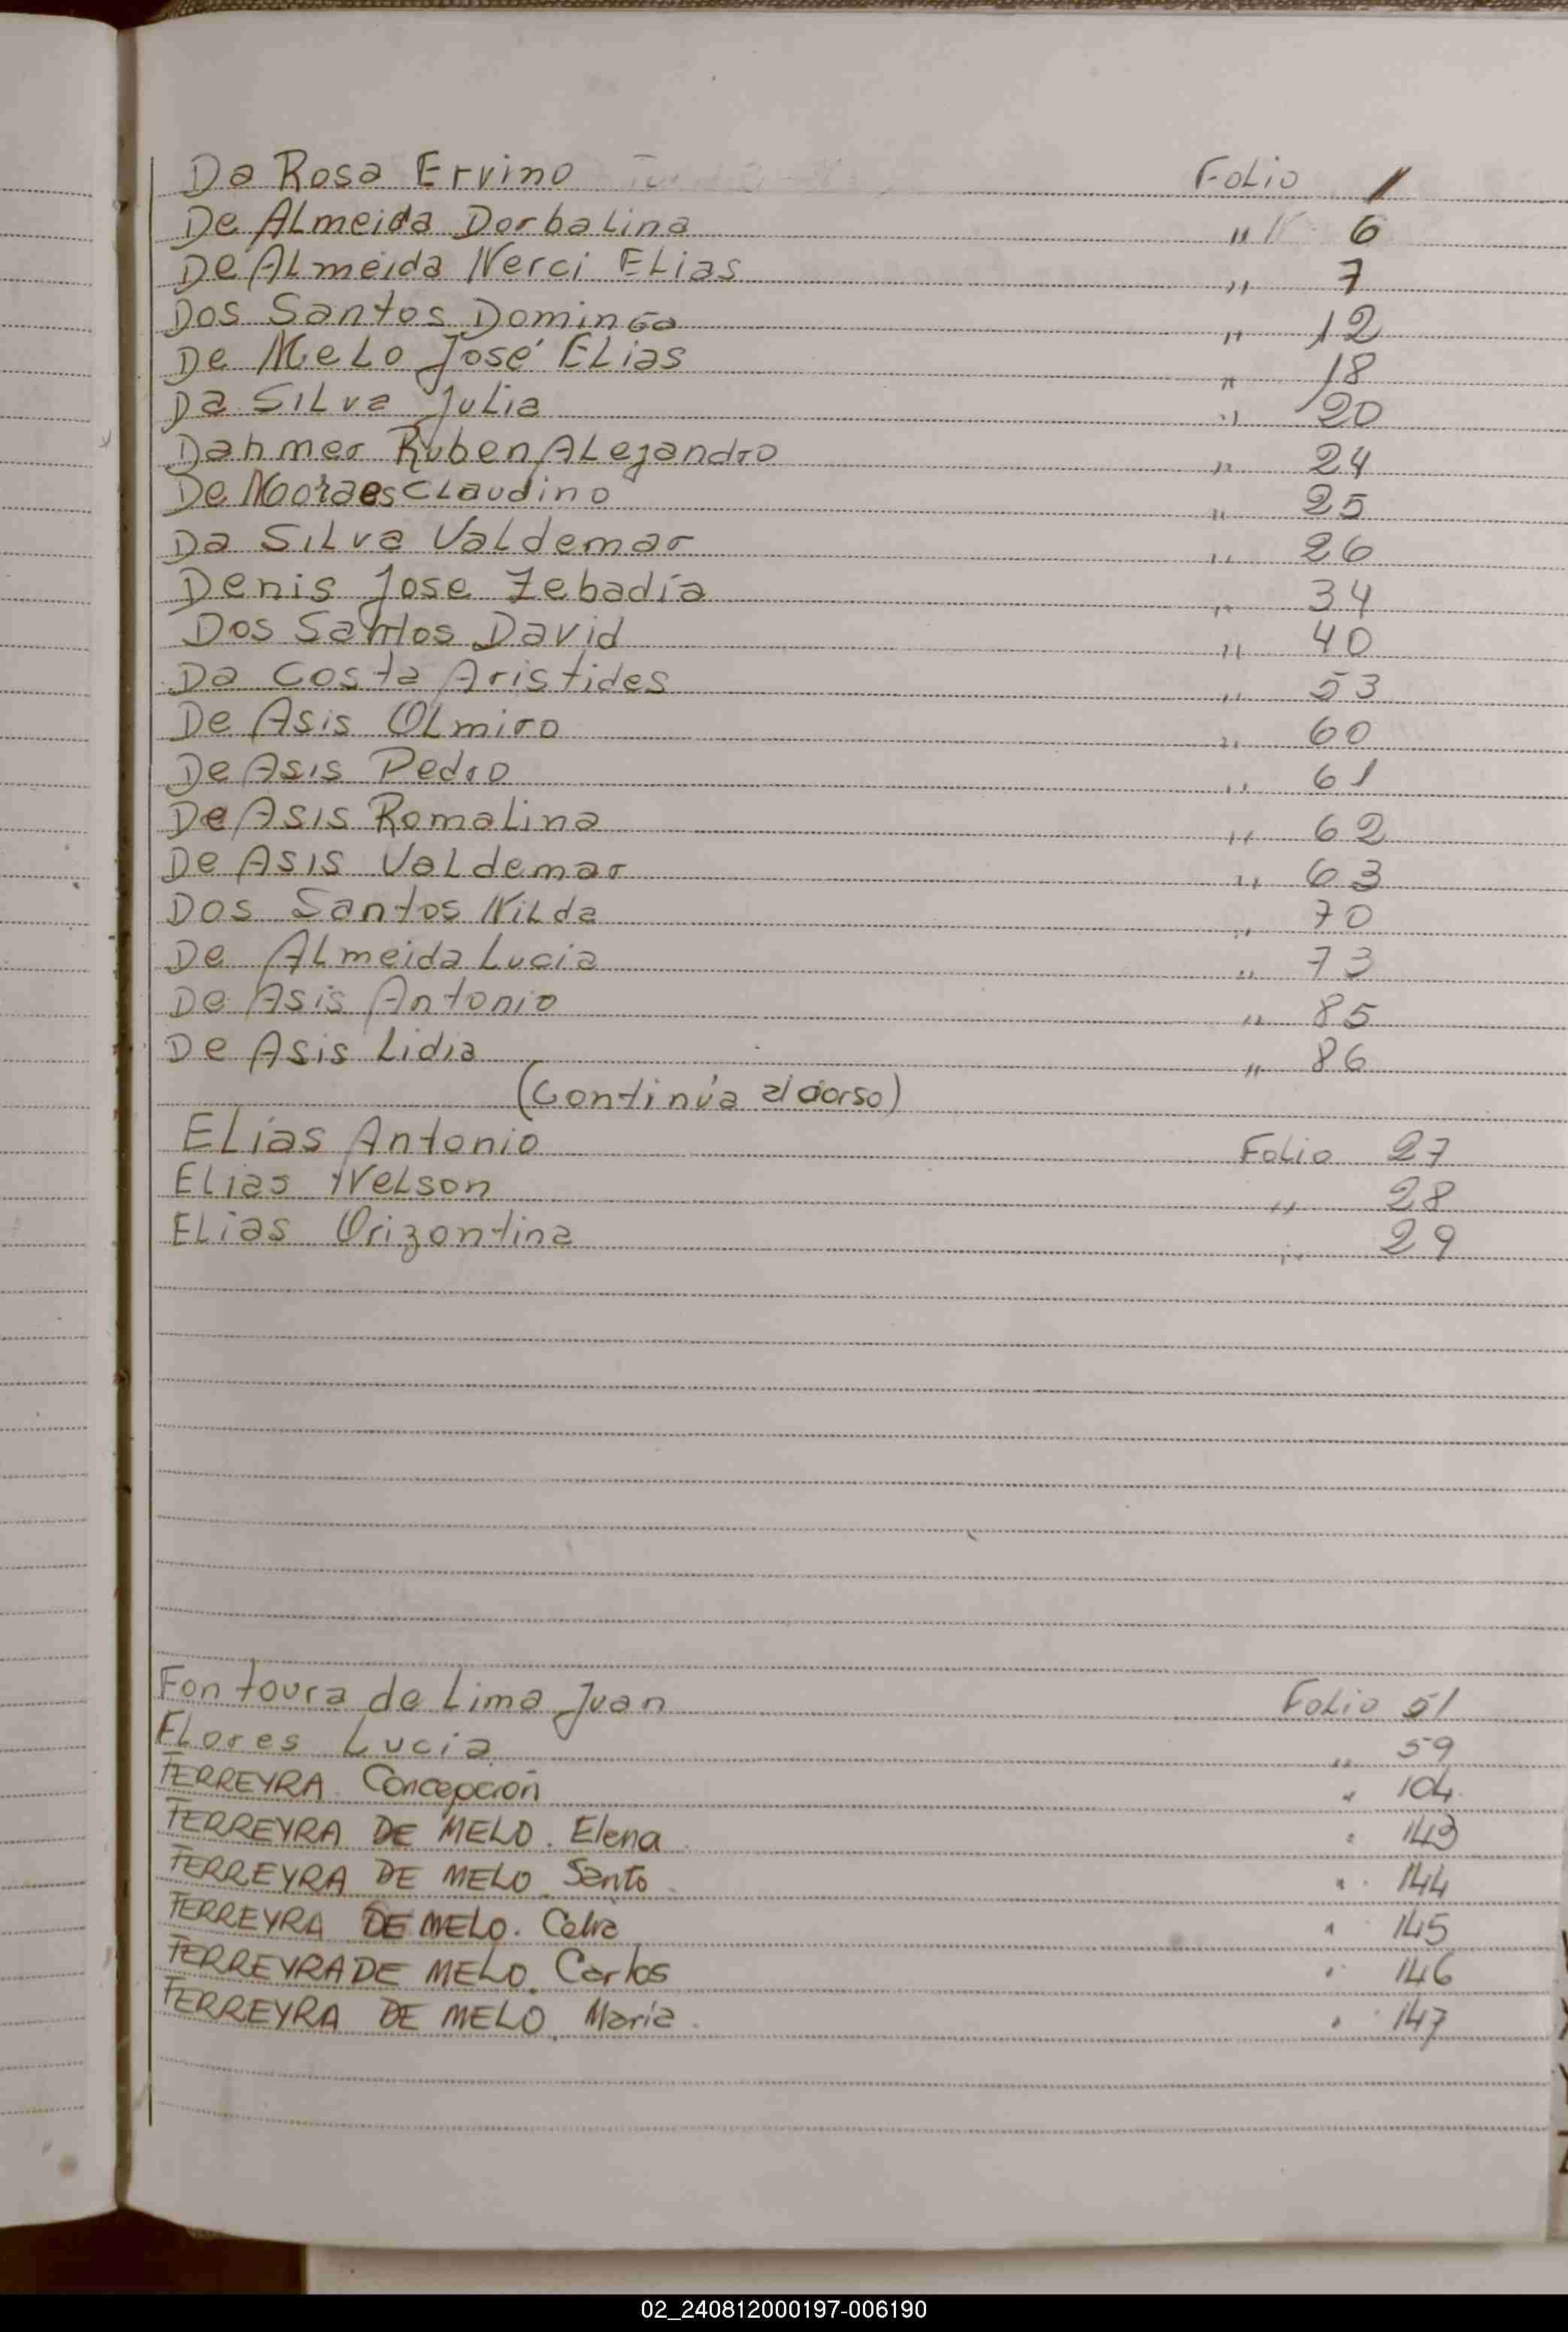 Da Rosa Ervino Folio 1
De Almeida Dorbalina " 6
De Almeida Nerci Elias " 7
Dos Santos Dominga " 12
De Melo José Elias " 18
Da Silva Julia " 20
Dahmer Ruben Alejandro " 24
De Moraes Claudino " 25
Da Silva Valdemar " 26
Denis Jose Zebadía " 34
Dos Santos David " 40
Da Costa Aristides " 53
De Asis Olmiro " 60
De Asis Pedro " 61
De Asis Romalina " 62
De Asis Valdemar " 63
Dos Santos Nilda " 70
De Almeida Lucia " 73
De Asis Antonio " 85
De Asis Lidia " 86
(Continúa al dorso)
Elias Antonio Folio 27
Elias Nelson " 28
Elias Orizontina " 29
Fontoura de Lima Juan Folio 51
Flores Lucia " 59
FERREYRA Concepción " 104
FERREYRA DE MELO. Elena " 143
FERREYRA DE MELO. Santo " 144
FERREYRA DE MELO. Celia " 145
FERREYRA DE MELO. Carlos " 146
FERREYRA DE MELO. Maria " 147
02_240812000197-006190